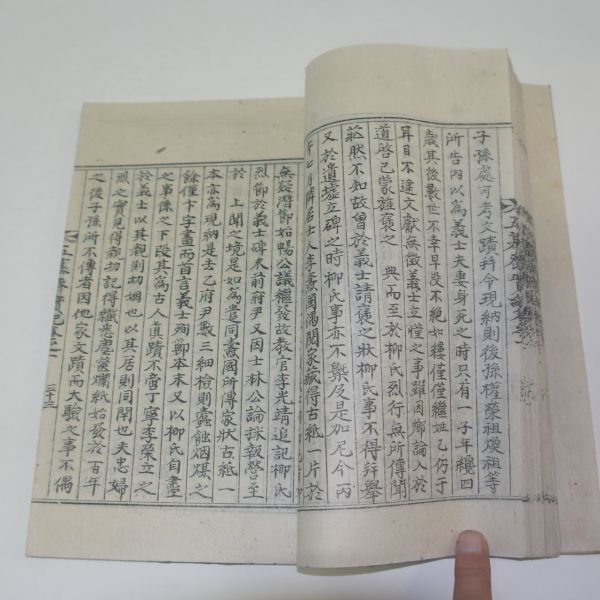 子孫處可考文蹟幷令現納則後孫權榮祖煥祖等
所告內以爲義士夫妻身死之時只有一子年纔四
歲其後數世不幸早沒不絶如縷僅僅繼姓乙仍于
耳目不逮文獻無徵義士立慬之事雖因鄕論入於
道啓已蒙旌褒之 典而至於柳氏烈行無所傳聞
茫然不知故曾於義士請褒之狀柳氏事不得幷擧
又於遺墟立碑之時柳氏事亦不槩及是如尼今丙
午七月隣居士人李憲國偶閱家藏得古紙一片於
無疑潛節始暢公議繼發故教官李光靖追記柳氏
烈節於義士碑末前府尹又因士林公論採報營至
於 上聞之境是如爲㫆同憲國所傳家狀古紙一
本亦爲現納是去乙府尹數三細檢則蠹蝕烟煤之
餘僅卞字畫而首言義士殉節本末又以柳氏自盡
之事係之下段其爲古人眞蹟不啻丁寧李榮立之
於義士以其親則切姻也以其居則同閈也夫忠婦
烈之實見得親切記得纖悉塵篋爛紙始發於百年
之後子孫所不傳者因他家文蹟而大驗之事不偶
三十三